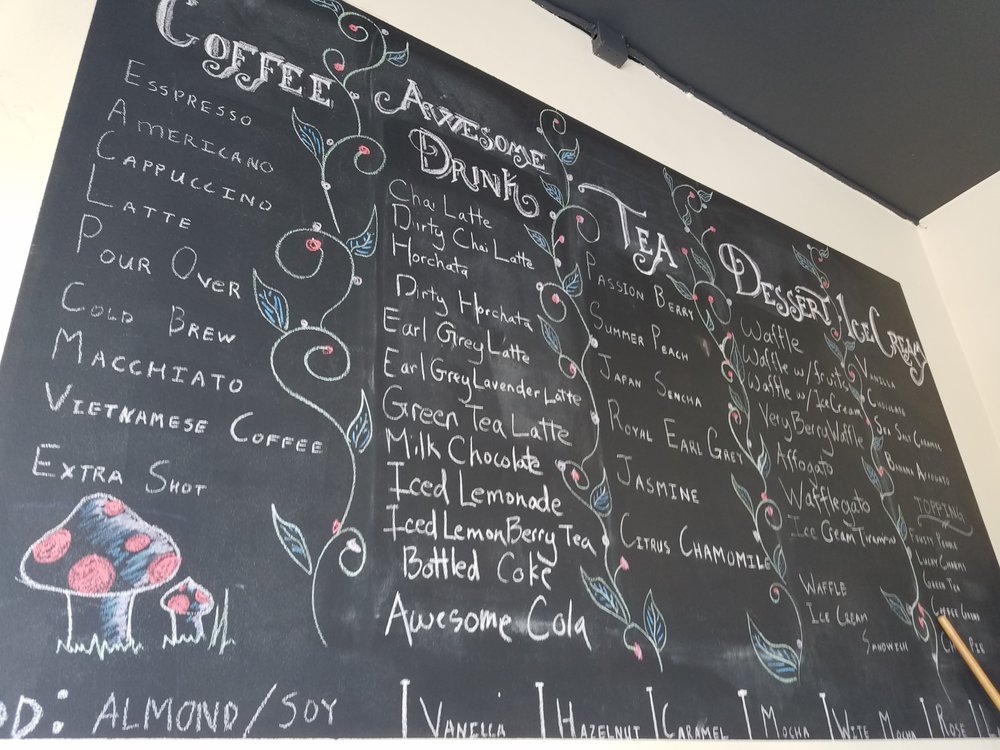 COFFEE
ESSPRESSO
AMERICANO
CAPPUCCINO
LATTE
POUR OVER
COLD BREW
MACCHIATO
VIETNAMESE COFFEE
EXTRA SHOT
AWESOME
DRINK
Chai Latte
Dirty Chai Latte
Horchata
Dirty Horchata
Earl Grey Latte
Earl Grey Lavender Latte
Green Tea Latte
Milk Chocolate
Iced Lemonade
Iced Lemon Berry Tea
Bottled Coke
Awesome Cola
TEA
PASSION BERRY
SUMMER PEACH
JAPAN SENCHA
ROYAL EARL GREY
JASMINE
CITRUS CHAMOMILE
DESSERT/ICE CREAM
Waffle
Waffle w/fruits
Waffle w/IceCream
Very Berry Waffle
Affogato
Wafflegato
Ice Cream
WAFFLE
ICE CREAM
SANDWICH
VANILLA
CHOCOLATE
SEA SALT CARAMEL
BANANA AFFOGATO
TOPPING
FRUITY
LUCKY CHARMS
GREEN TEA
COFFEE
PIE
D: ALMOND/SOY | VANILLA | HAZELNUT | CARAMEL | MOCHA | WITE MOCHA | ROSE |